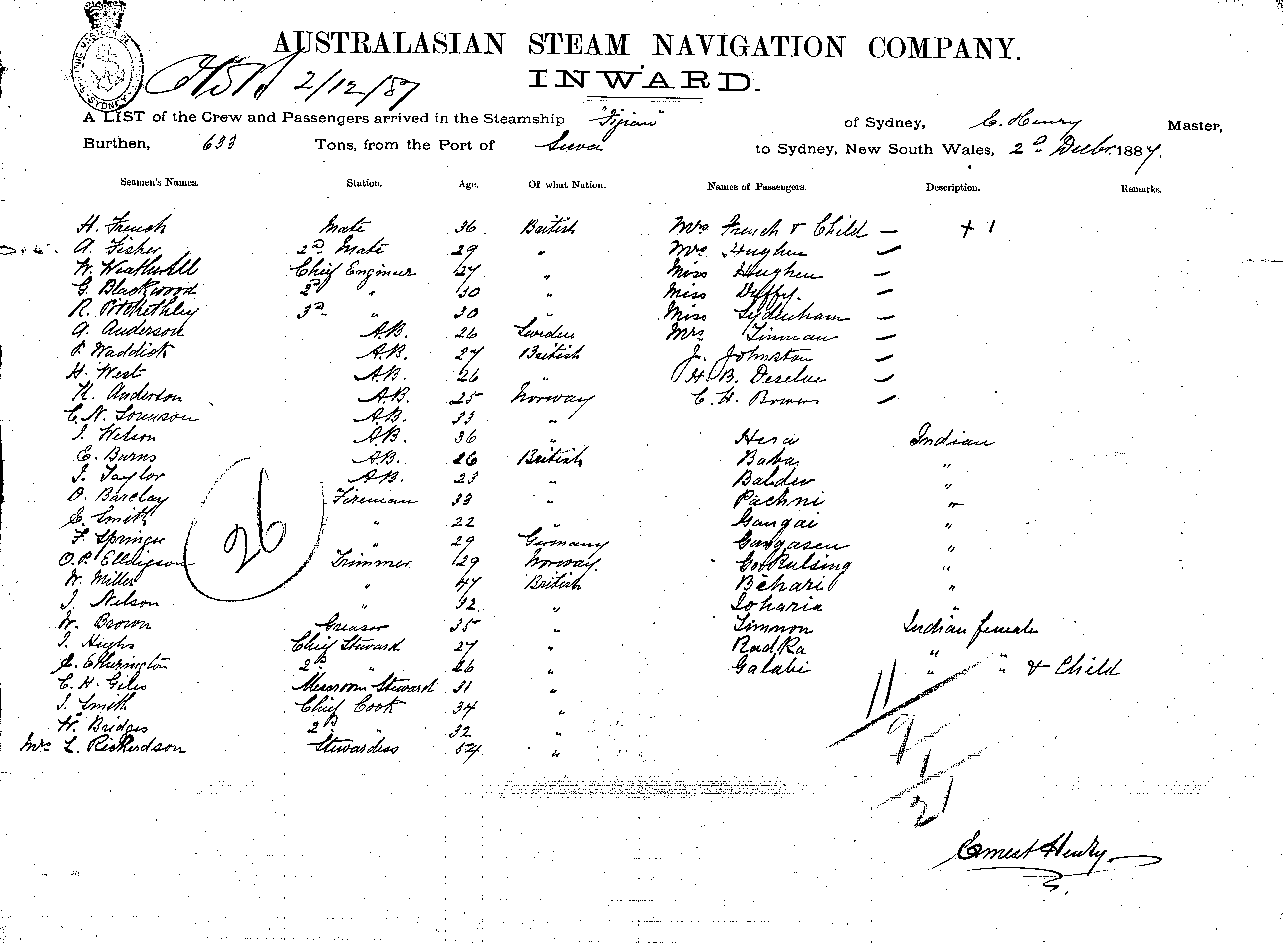 AUSTRALASIAN STEAM NAVIGATION COMPANY.
2/12/87
INWARD.
A LIST of the Crew and Passengers arrived in the Steamship "Fijian" of Sydney, C. Henry Master,
Burthen, 633 Tons, from the Port of Suva to Sydney, New South Wales, 2d Decbr. 1887.
Seamen's Names. Station. Age. Of what Nation. Names of Passengers. Description. Remarks.
H. French Mate 36 British Mrs French & Child — + 1
A. Fisher 2d Mate 29 " Mrs Hughen —
W. Weatherill Chief Engineer 27 " Miss Hughen —
G. Blackwood 2d " 30 " Miss Duffy. —
R. Pitkethley 3d " 30 " Miss Sydenham —
A. Anderson A.B. 26 Sweden Mrs Tinman —
P. Waddick A.B. 27 British J. Johnston —
H. West A.B. 26 " H. B. —
K. Anderson A.B. 25 Norway C. H. Bowers —
C. N. Sorenson A.B. 33 "
J. Welson A.B. 36 " Hera Indian
E. Burns A.B. 26 British Baba "
J. Taylor A.B. 23 " Baldev "
D. Barclay Fireman 33 " Pachni "
E. Smith " 22 " Gangai "
F. Springer " 29 Germany Gangasen "
O. P. Ellefson Trimmer 29 Norway. "
W. Miller " 47 British Behari "
J. Nelson " 32 " Loharia "
W. Brown Greaser 35 " Simmon Indian female
J. Highs Chief Steward 27 " Radka "
E. Etherington 2d " 26 " Galabi " " & Child
C. H. Giles Messroom Steward 31 "
J. Smith Chief Cook 34 "
W. Bridges 2d " 32 "
Mrs L. Rickerdson Stewardess 54 "
26
11
9
1
21
Ernest Henry